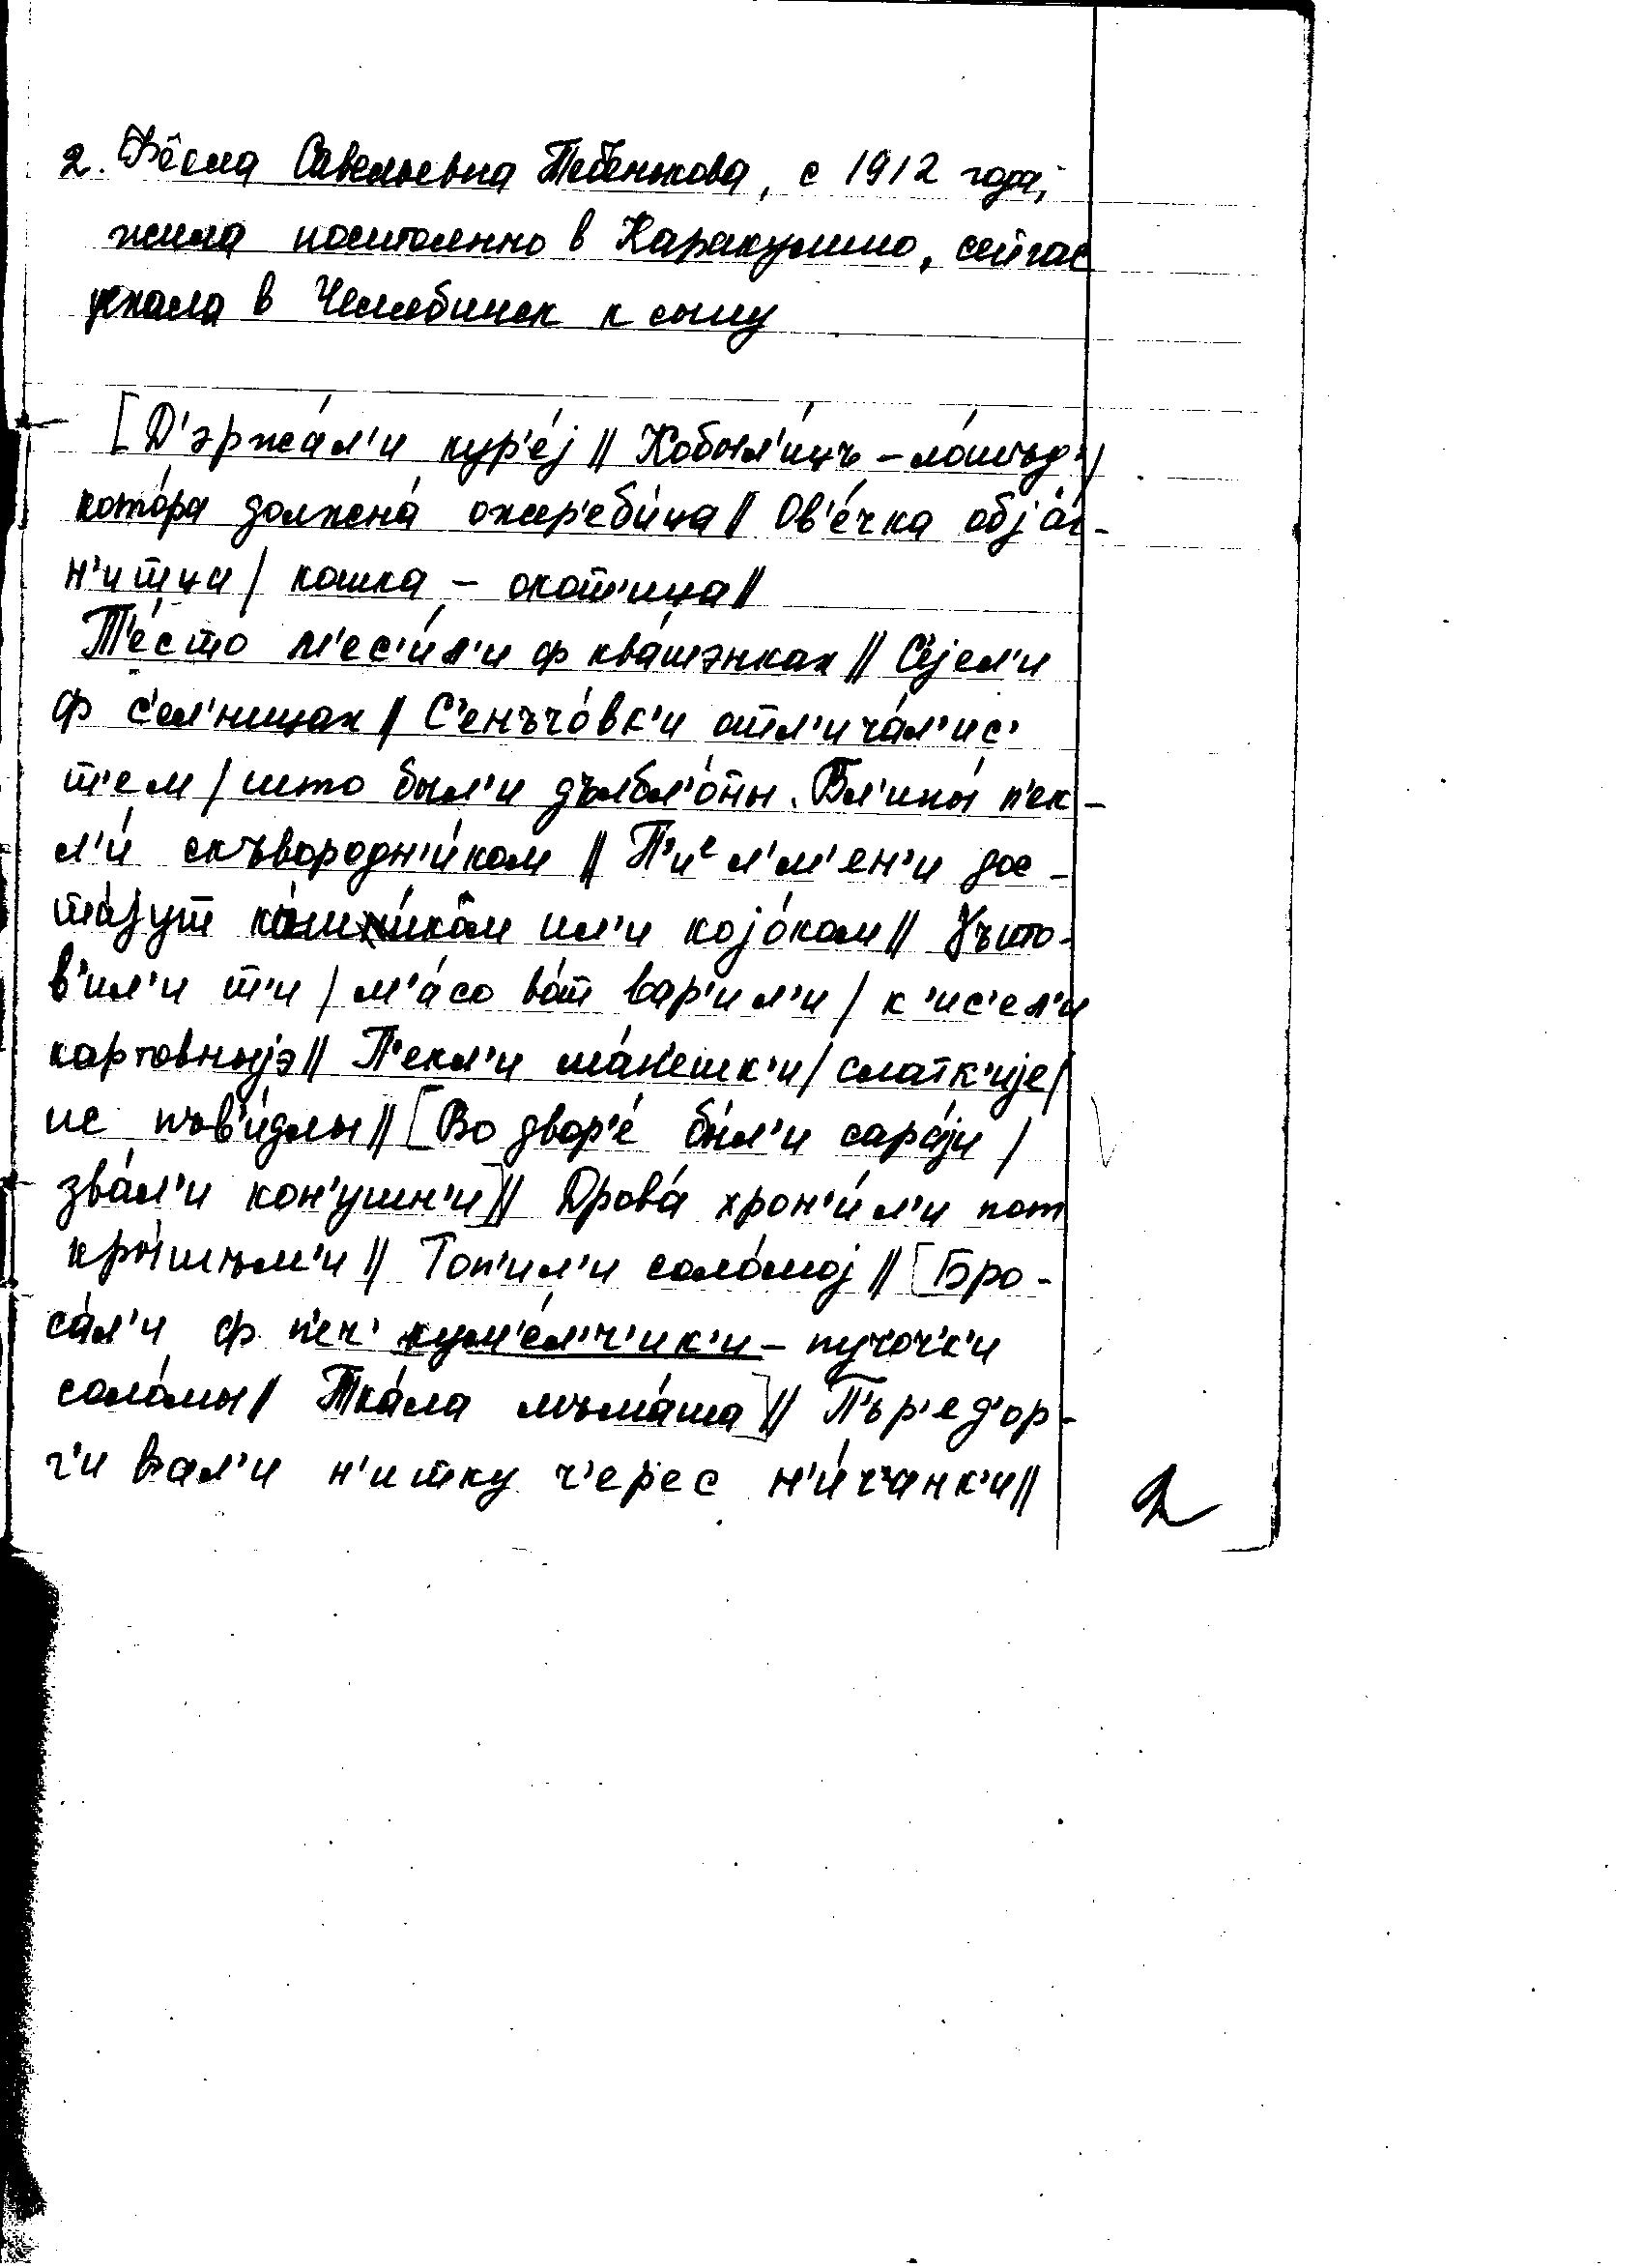 2. Фёкла Савельевна Тебенькова, с 1912 года,
жила постоянно в Каракульно, сейчас
уехала в Челябинск к сыну
[Д'эржа́л'и кур'е́j // Кобыл'и́цъ – ло́шъд'/
кото́ра должна́ ожер'еби́ца // Ов'е́чка обjа́г-
н'итца / кошка – окот'ица //
Т'е́сто м'ес'и́л'и ф ква́шэнках // С'е́jел'и
ф с'ел'ницах // С'енъчо́вк'и отл'ича́л'ис'
т'ем / што был'и дълбл'о́ны. Бл'ины́ п'ек-
л'и́ скъвородн'и́ком // П'иᵉл'м'ен'и дос-
та́jут ил'и коjо́ком // Гъто-
в'ил'и т'и / м'а́со во́т вар'ил'и / к'ис'ел'и
картовныjэ // П'екл'и ша́н'ешк'и / слатк'иjе /
ис пъв'и́длы // [Во двор'е́ бы́л'и сара́jи /
зва́л'и кон'ушн'и] // Дрова́ хрон'и́л'и пот
кры́шъм'и // Топ'ил'и соло́моj // [Бро-
са́л'и ф п'еч' кум'е́л'ч'ик'и – пучоч'к'и
соло́мы // Тка́ла мъма́ша] // П'ър'ед'ор-
г'и вал'и н'итку ч'ерес н'и́ч'анк'и //
2